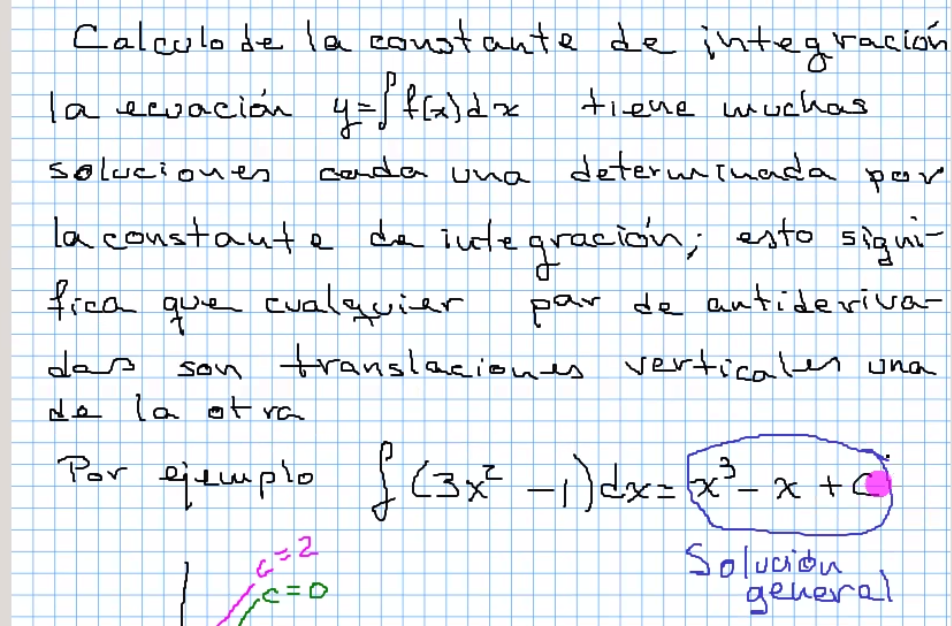 Calculo de la constante de integración
la ecuación y=∫f(x)dx tiene muchas
soluciones cada una determinada por
la constante de integración; esto signi-
fica que cualquier par de antideriva-
das son translaciones verticales una
de la otra
Por ejemplo ∫(3x² -1)dx= x³- x + C
Solución
general
c=2
c=0